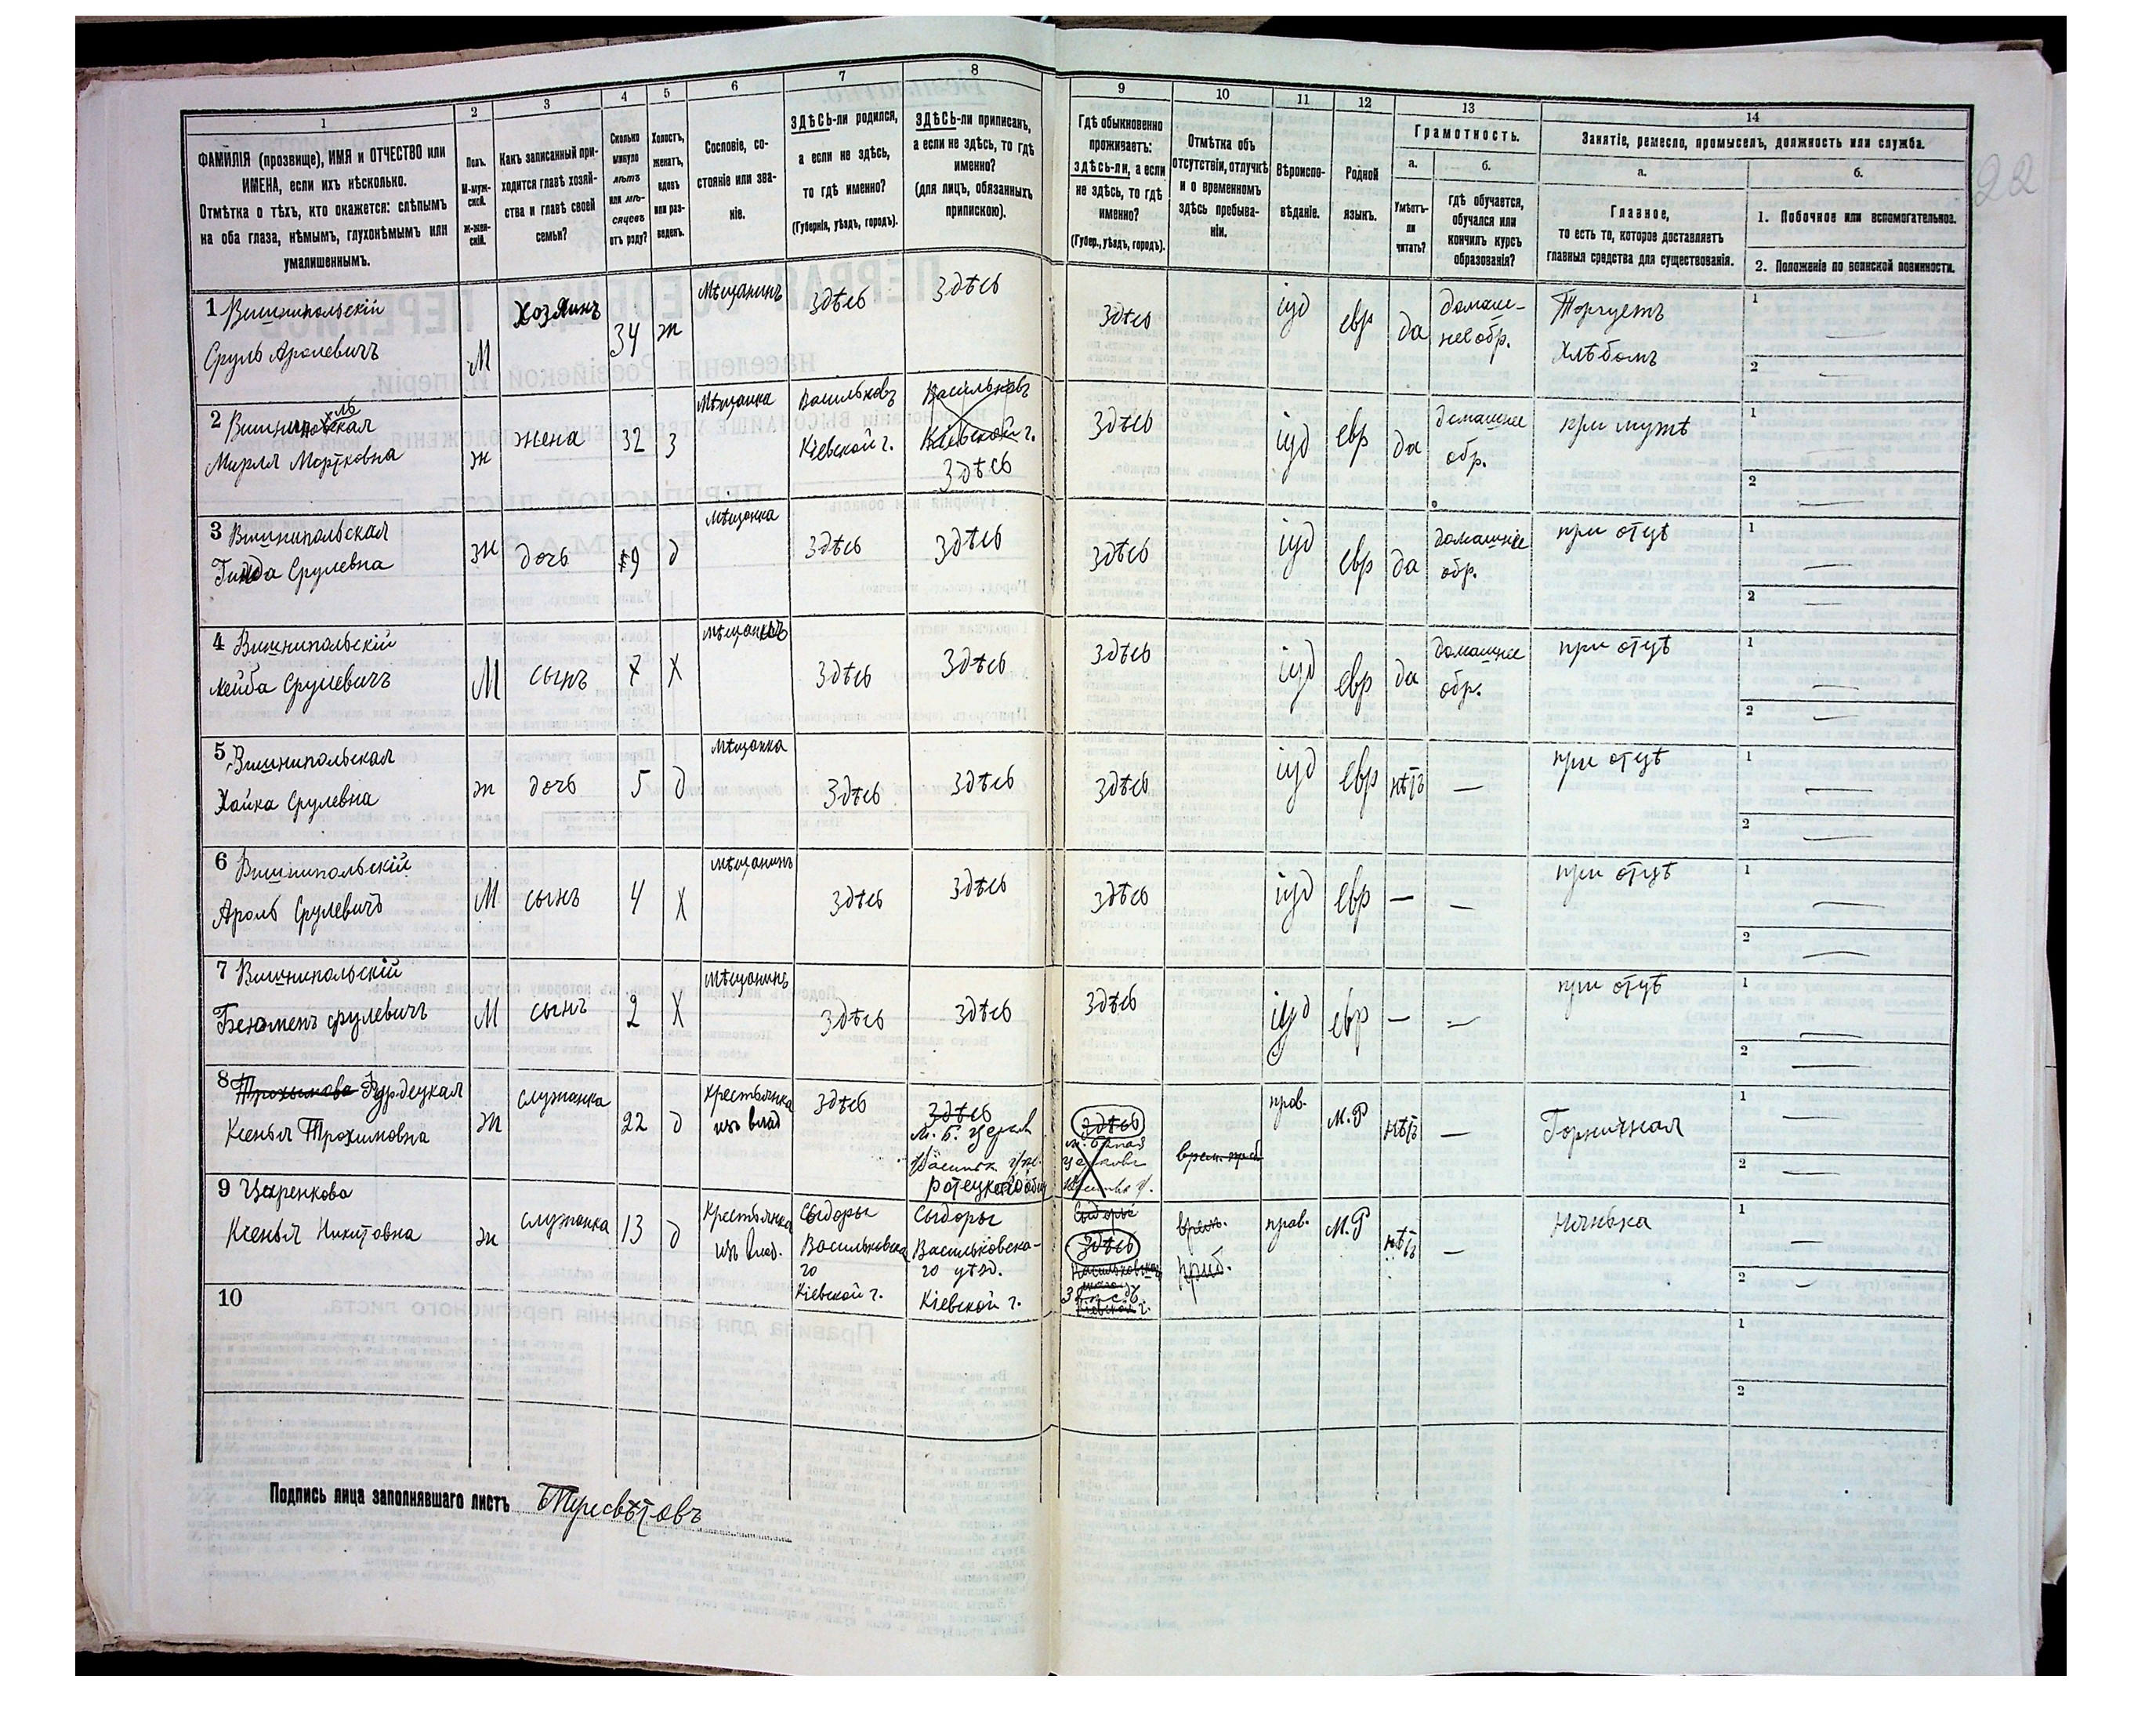 1
2
3
4
5
6
7
8
9
10
11
12
13
14
ФАМИЛІЯ (прозвище), ИМЯ и ОТЧЕСТВО или
ИМЕНА, если ихъ нѣсколько.
Отмѣтка о тѣхъ, кто окажется: слѣпымъ
на оба глаза, нѣмымъ, глухонѣмымъ или
умалишеннымъ.
Полъ.
М-муж-
ской.
Ж-жен-
скій.
Какъ записанный при-
ходится главѣ хозяй-
ства и главѣ своей
семьи?
Сколько
минуло
лѣтъ
или мѣ-
сяцевъ
отъ роду?
Холостъ,
женатъ,
вдовъ
или раз-
веденъ.
Сословіе, со-
стояніе или зва-
ніе.
ЗДѢСЬ-ли родился,
а если не здѣсь,
то гдѣ именно?
(Губернія, уѣздъ, городъ).
ЗДѢСЬ-ли приписанъ,
а если не здѣсь, то гдѣ
именно?
(для лицъ, обязанныхъ
припискою).
Гдѣ обыкновенно
проживаетъ:
здѣсь-ли, а если
не здѣсь, то гдѣ
именно?
(Губер., уѣздъ, городъ).
Отмѣтка объ
отсутствіи, отлучкѣ
и о временномъ
здѣсь пребыва-
ніи.
Вѣроиспо-
вѣданіе.
Родной
языкъ.
Грамотность.
а.
б.
Умѣетъ-
ли
читать?
гдѣ обучается,
обучался или
кончилъ курсъ
образованія?
Занятіе, ремесло, промыселъ, должность или служба.
а.
б.
Главное,
то есть то, которое доставляетъ
главныя средства для существованія.
1. Побочное или вспомогательное.
2. Положеніе по воинской повинности.
22
1 Вишнипольскій
Сруль Аролевичъ
М
Хозяинъ
34
ж
Мѣщанинъ
Здѣсь
Здѣсь
Здѣсь
іуд
евр
да
домаш-
нее обр.
Торгуетъ
Хлѣбомъ
1
2
2 Вишнипольская
Мирля Мортковна
ж
жена
32
з
Мѣщанка
Васильковъ
Кіевской г.
Васильковъ
Кіевской г.
Здѣсь
Здѣсь
іуд
евр
да
домашнее
обр.
при мужѣ
1
2
3 Вишнипольская
Гинда Срулевна
ж
дочь
9
д
Мѣщанка
Здѣсь
Здѣсь
Здѣсь
іуд
евр
да
домашнее
обр.
при отцѣ
1
2
4 Вишнипольскій
Лейба Срулевичъ
М
сынъ
7
Х
мѣщанинъ
Здѣсь
Здѣсь
Здѣсь
іуд
евр
да
домашнее
обр.
при отцѣ
1
2
5 Вишнипольская
Хайка Срулевна
ж
дочь
5
д
мѣщанка
Здѣсь
Здѣсь
Здѣсь
іуд
евр
нѣтъ
—
при отцѣ
1
2
6 Вишнипольскій
Ароль Срулевичъ
М
сынъ
4
Х
мѣщанинъ
Здѣсь
Здѣсь
Здѣсь
іуд
евр
—
—
при отцѣ
1
2
7 Вишнипольскій
Бенюменъ Срулевичъ
М
сынъ
2
Х
мѣщанинъ
Здѣсь
Здѣсь
Здѣсь
іуд
евр
—
—
при отцѣ
1
2
8
Ксенья Трохимовна
ж
служанка
22
д
крестьянка
изъ влад
Здѣсь
Здѣсь
м. Б. Церкв
Здѣсь
м. Бѣлая
Церковь
прав.
М.Р
нѣтъ
—
Горничная
1
2
9 Царенкова
Ксенья Никитовна
ж
служанка
13
д
Крестьянка
изъ влад.
Сыдоры
Васильковска
го
Кіевской г.
Сыдоры
Васильковска-
го уѣзд.
Кіевской г.
Сыдоры
Здѣсь
Кіевской г.
врем.
приб.
прав.
М.Р
нѣтъ
—
нянька
1
2
10
1
2
Подпись лица заполнявшаго листъ